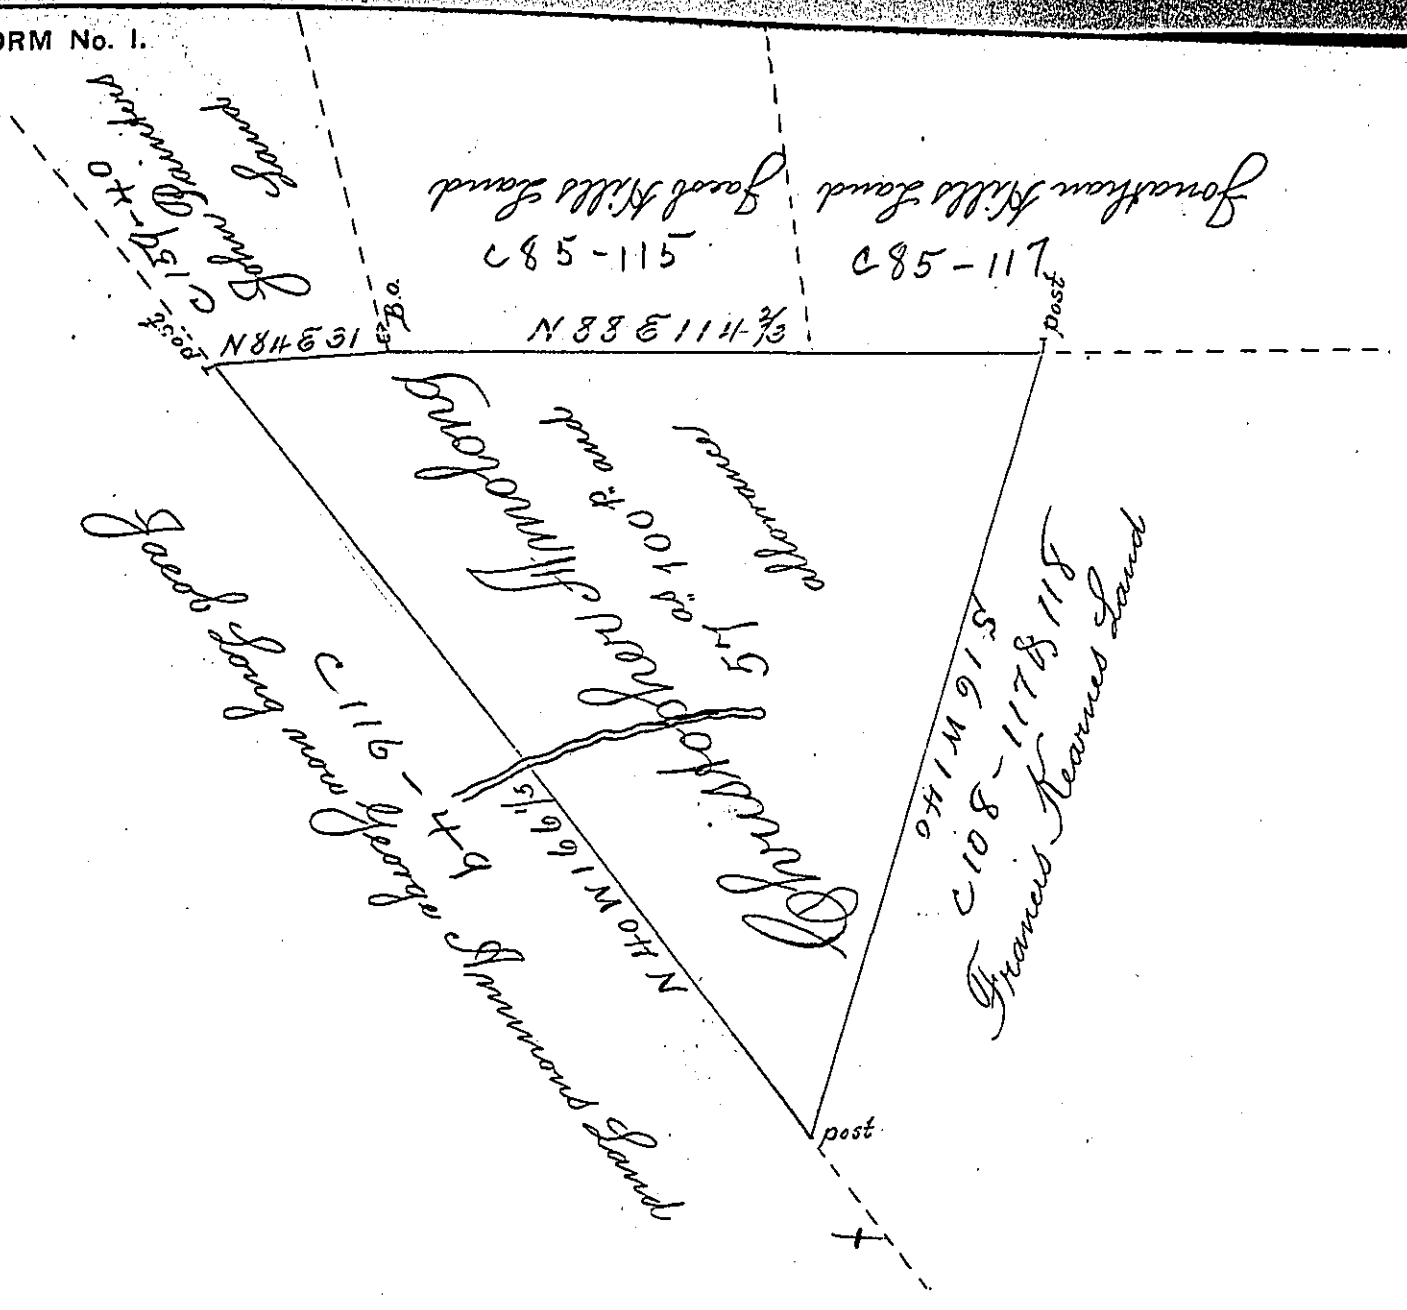 ORM No. 1.
John Gainters
Land
C 159-40
Jacob Hills Land
C85-115
Jonathan Hills Land
C85-117
post
N 84 E 31
B.O.
N 88 E 114 3/2
post
Christopher Armolong
57 as 100 p. and
allowance
S 16 W 140
C 108-117 & 118
Francis Kearnes Land
N 40 W 166 1/5
C 116 - 49
Jacob Long now George Ammons Land
post